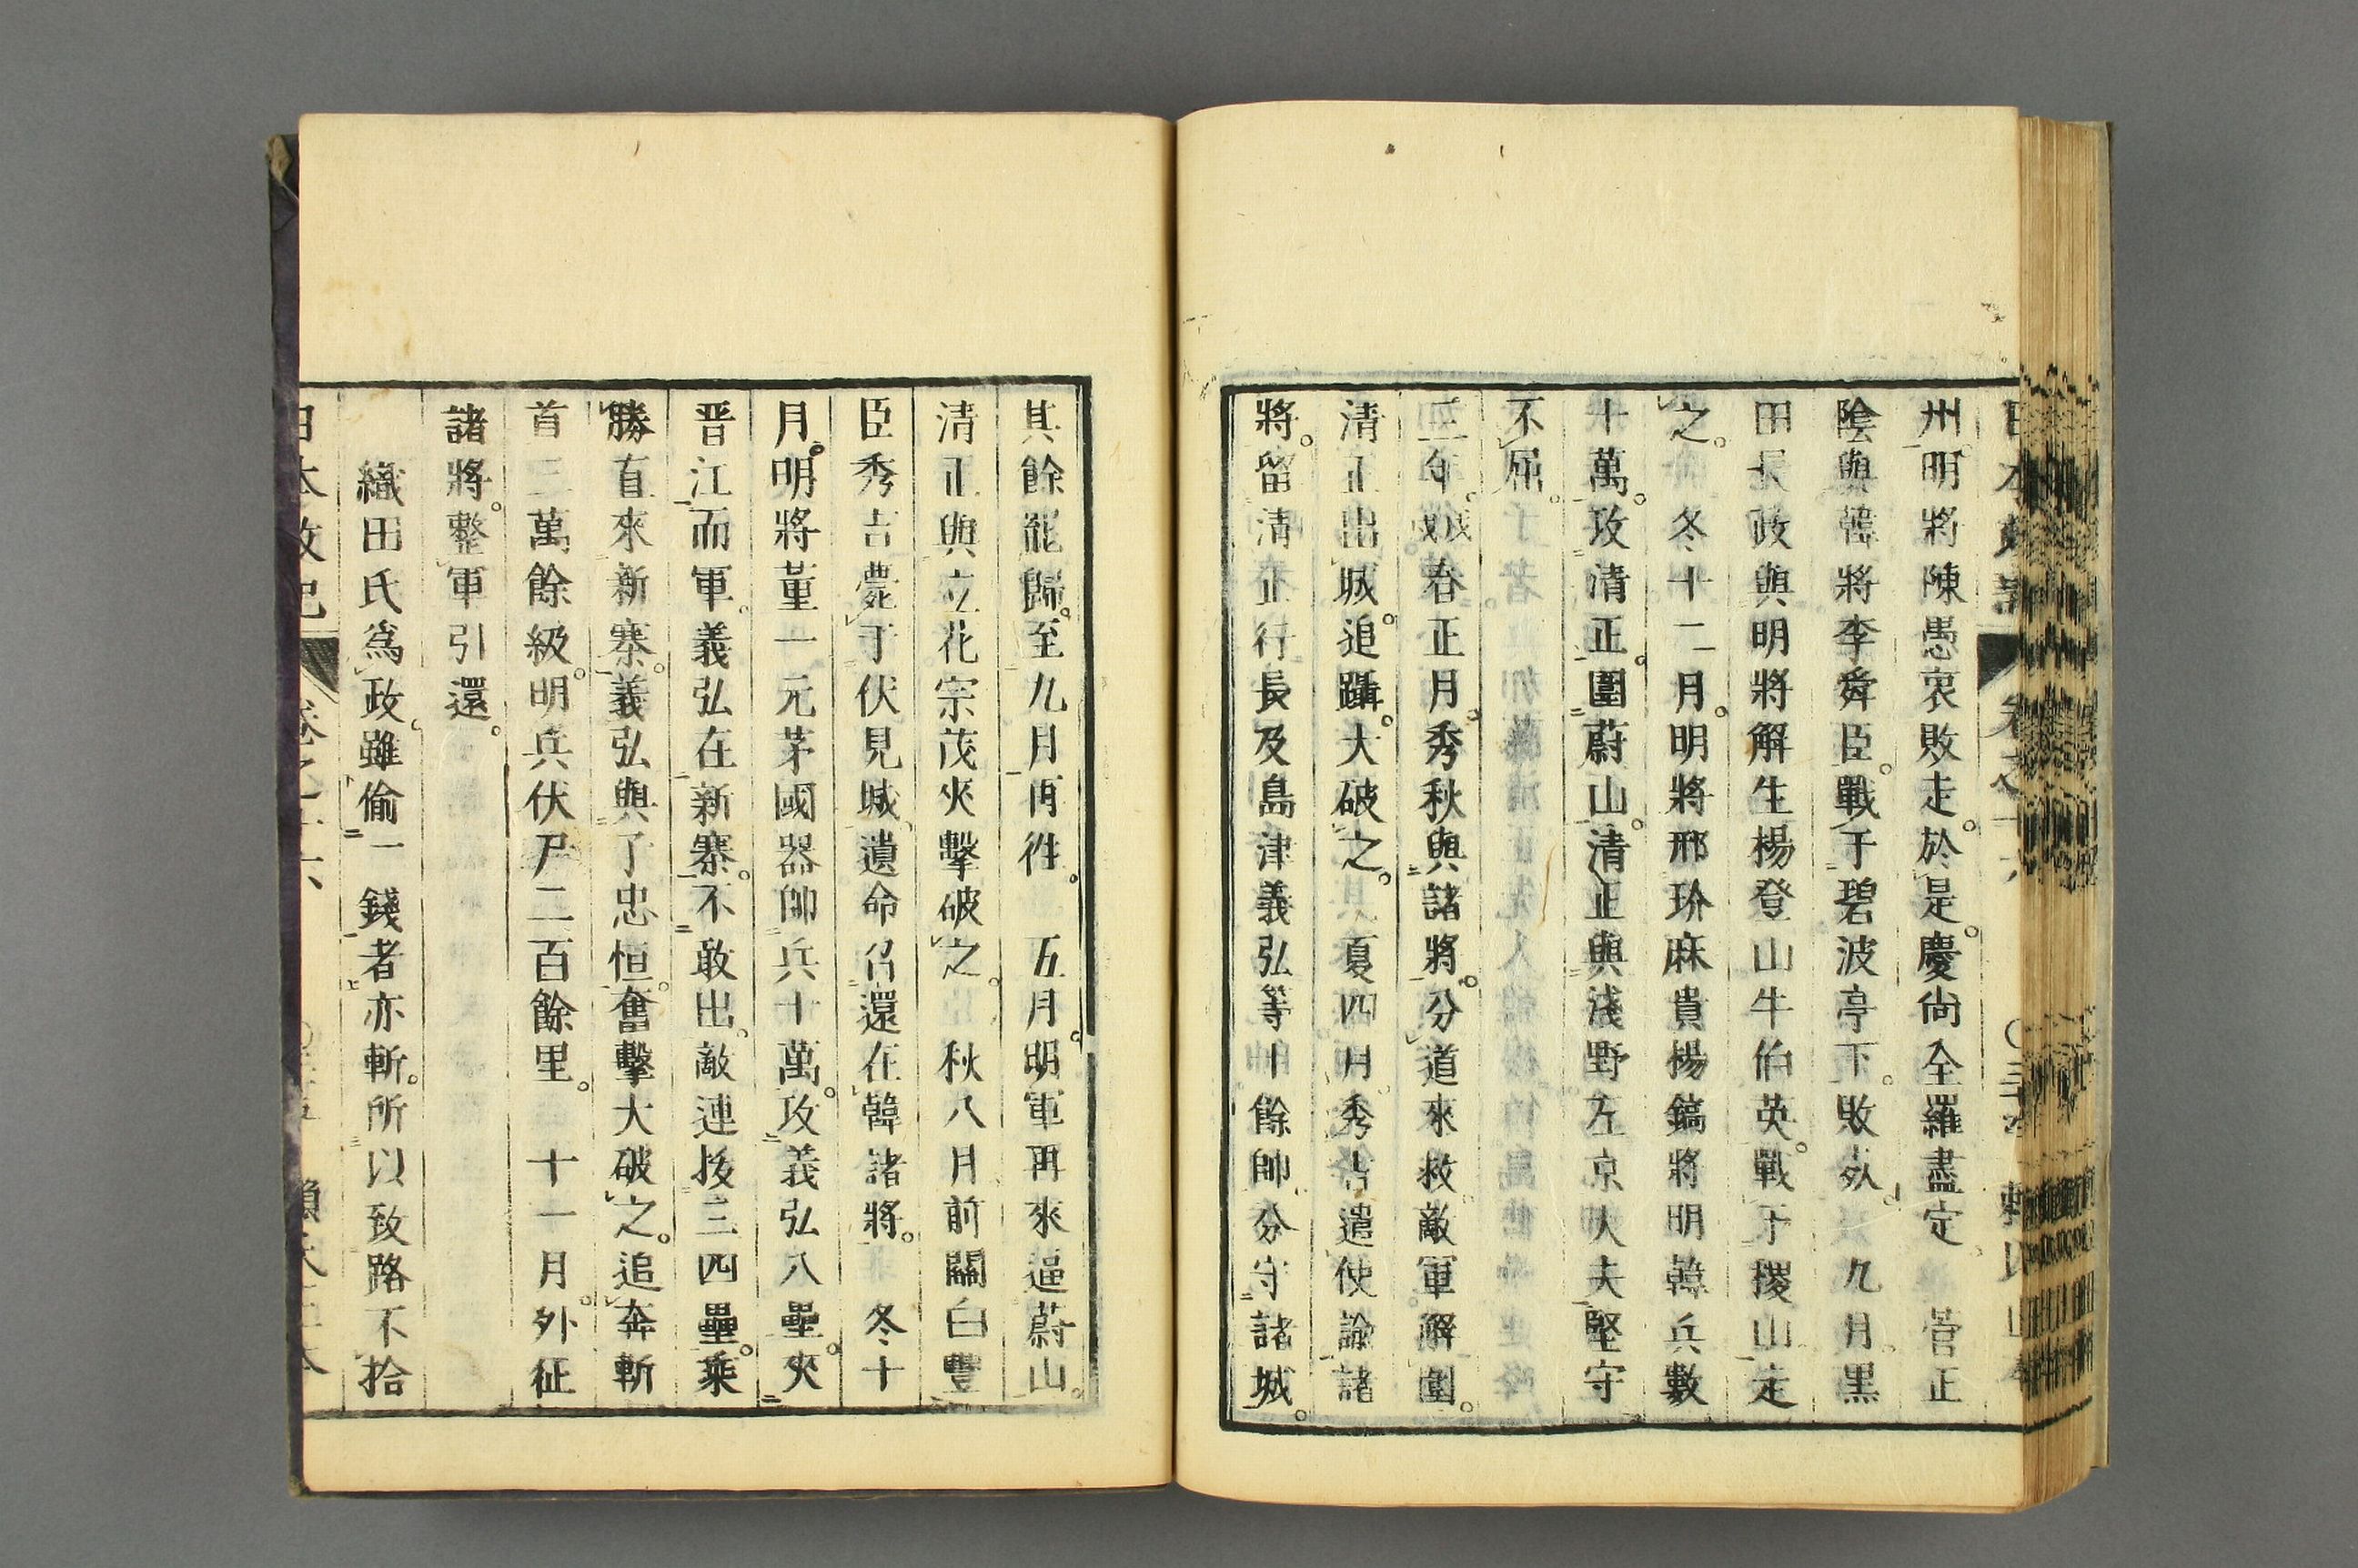 州明將陳愚衷敗走。於是。慶尙全羅盡定 菅正
陰與韓將李舜臣。戰于碧波亭下。敗 九月黒
田長政與明將解生楊登山牛伯英。戰于稷山走
之。冬十二月。明將邢玠麻貴楊鎬將明韓兵數
十萬。攻清正。圍蔚山。清正與淺野左京大夫堅守
不屈。
三年。戊戌春正月。秀秋與諸將。分道來救敵軍解圍。
清正出城。追躡。大破之。夏四月秀吉遣使諭諸
將。留清正行長及島津義弘等十餘帥分守諸城。
其餘罷歸。至九月再徃。五月。明軍再來逼蔚山。
清正與立花宗茂夾擊破之。秋八月前關白豐
臣秀吉薨于伏見城遺命召還在韓諸將。冬十
月。明將董一元茅國器帥兵十萬。攻義弘八壘。夾
晋江而軍。義弘在新寨。不敢出。敵連拔三四壘。乘
勝直來新寨。義弘與子忠恒。奮擊大破之。追奔斬
首三萬餘級。明兵伏尸二百餘里。十一月。外征
諸將。整軍引還。
織田氏爲政。雖偷一錢者亦斬。所以致路不拾
日本政記 卷之十六